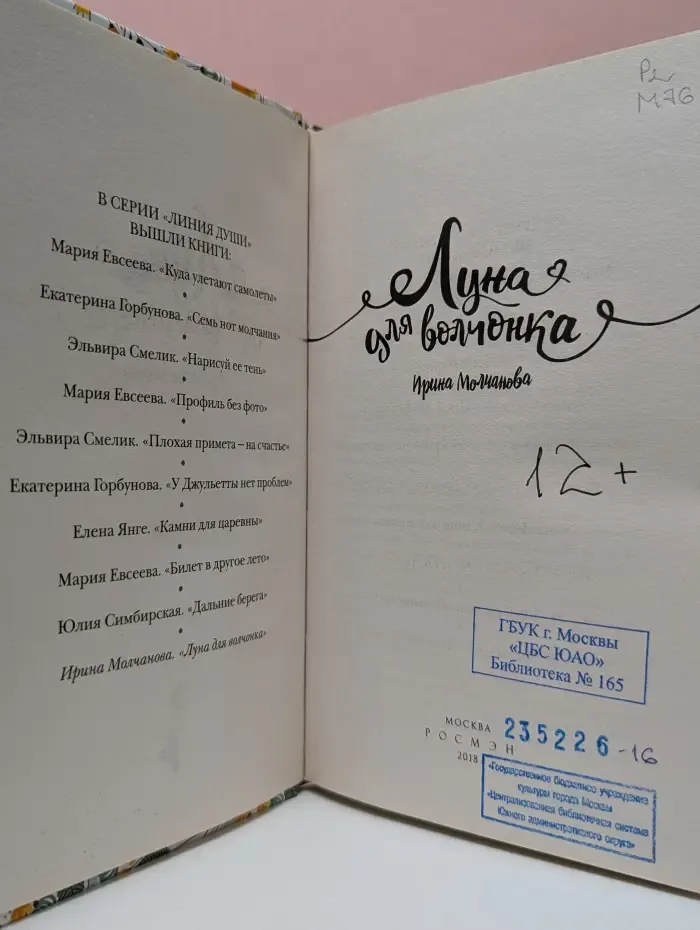 В СЕРИИ «ЛИНИЯ ДУШИ»
ВЫШЛИ КНИГИ:
Мария Евсеева. «Куда улетают самолеты»
•
Екатерина Горбунова. «Семь нот молчания»
•
Эльвира Смелик. «Нарисуй ее тень»
•
Мария Евсеева. «Профиль без фото»
•
Эльвира Смелик. «Плохая примета – на счастье»
•
Екатерина Горбунова. «У Джульетты нет проблем»
•
Елена Янге. «Камни для царевны»
•
Мария Евсеева. «Билет в другое лето»
•
Юлия Симбирская. «Дальние берега»
•
Ирина Молчанова. «Луна для волчонка»
М76
Луна
для волчонка
Ирина Молчанова
12+
ГБУК г. Москвы
«ЦБС ЮАО»
Библиотека № 165
МОСКВА
РОСМЭН
2018
235226-16
«Государственное бюджетное учреждение
культуры города Москвы
«Централизованная библиотечная система
Южного административного округа»